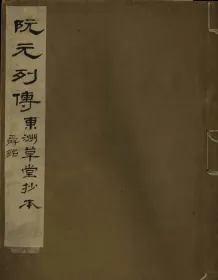 阮元列傳東洲草堂抄本